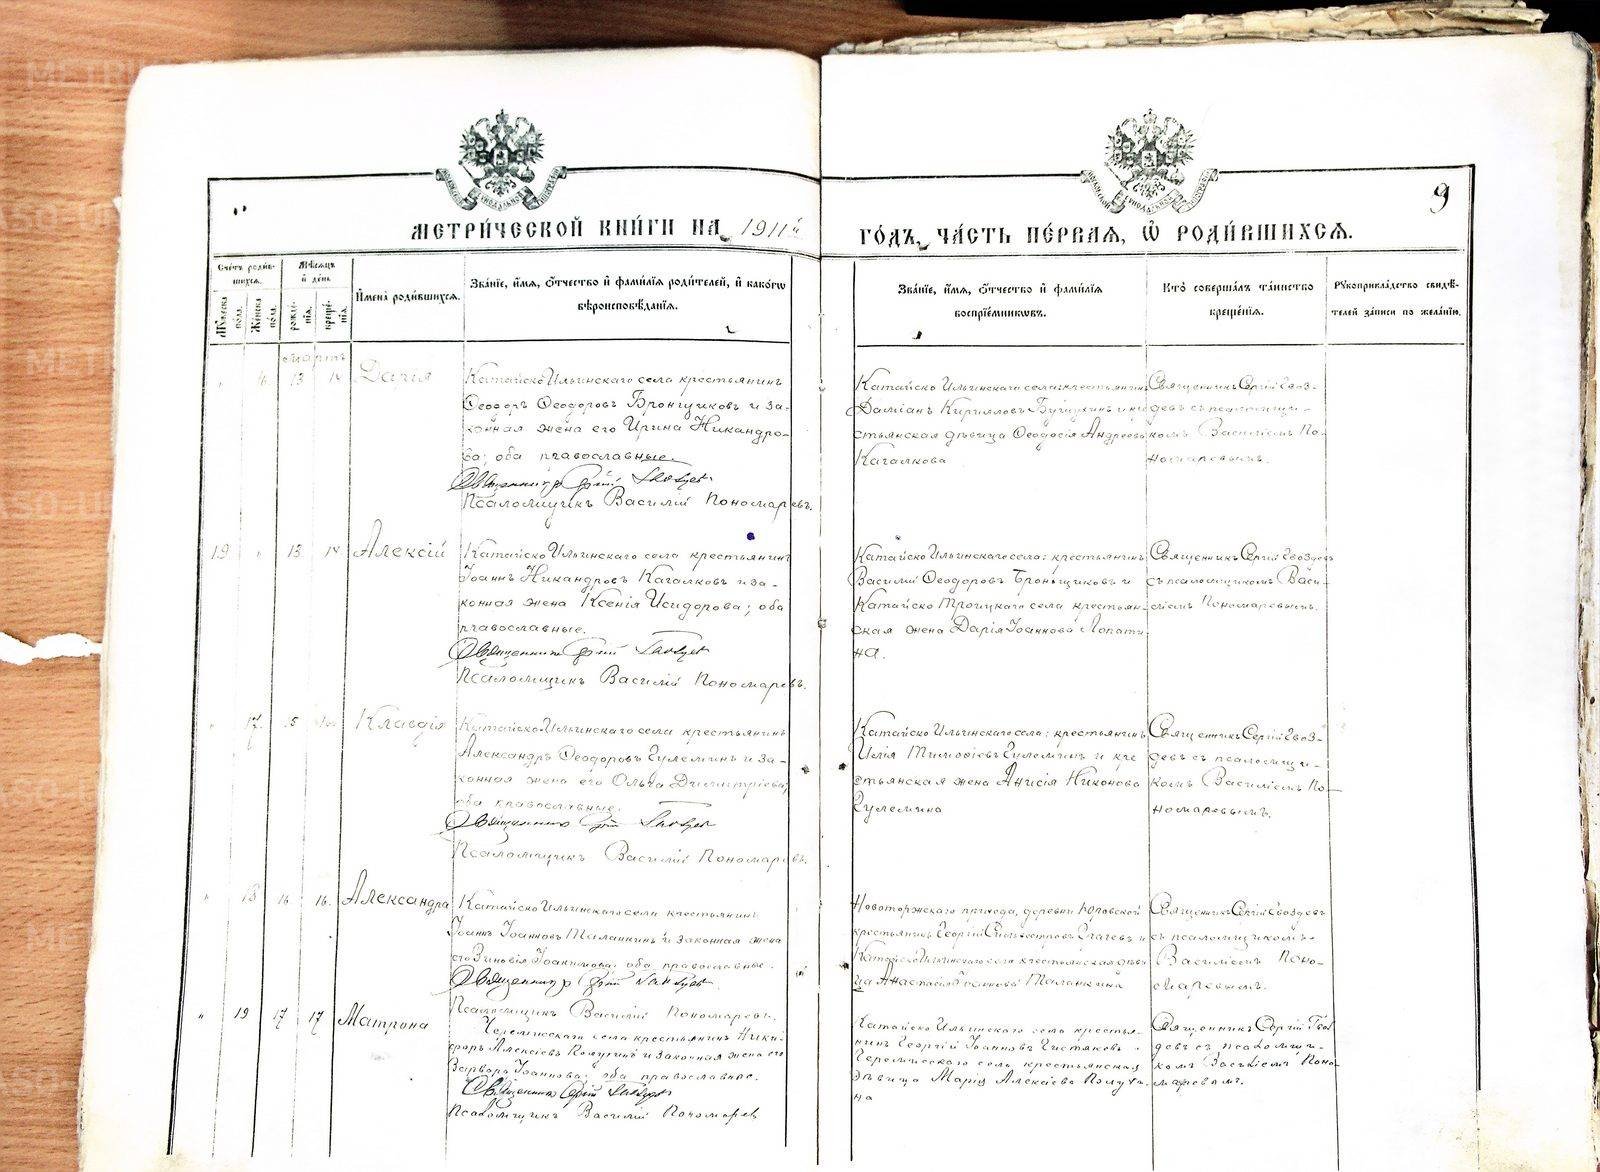 9
МЕТРИ́ЧЕСКОЙ КНИ́ГИ НА 1911й
ГО́ДЪ, ЧА́СТЬ ПЕ́РВАЯ, Ѿ РОДИ́ВШИХСЯ.
Сче́тъ роди́в-
шихся.
Му́жска по́ла.
Же́нска по́ла.
Мѣ́сяцъ
и де́нь
рожде́нїя.
креще́нїя.
И҆мена̀ роди́вшихся.
Зва́нїе, и҆́мя, ѻ҆́тчество и҆ фами́лїя роди́телей, и҆ како́гѡ
вѣроисповѣ́данїя.
Зва́нїе, и҆́мя, ѻ҆́тчество и҆ фами́лїя
воспрїе́мникѡвъ.
Кто̀ соверша́лъ та́инство
креще́нїя.
Рꙋкоприкла́дство свидѣ́-
телей за́писи по жела́нїю.
Мартъ
13
Дарія
Катайско Ильинскаго села крестьянинъ
Ѳеодоръ Ѳеодоровъ Бронщиковъ и за-
конная жена его Ирина Никандро-
ва; оба православные.
Священникъ Сергій Гвоздевъ
Псаломщикъ Василій Пономаревъ.
Катайско Ильинскаго села: крестьянинъ
Даміанъ Кирилловъ и кре
стьянская дѣвица Ѳеодосія Андреева
Кагалкова
Священникъ Сергій Гвоз-
девъ съ псаломщи-
комъ Василіемъ По-
номаревымъ.
19 " 13
Алексій
Катайско Ильинскаго села крестьянинъ
Іоаннъ Никандровъ Кагалковъ и за-
конная жена Ксенія Исидорова; оба
православные.
Священникъ Сергій Гвоздевъ
Псаломщикъ Василій Пономаревъ.
Катайско Ильинскаго села: крестьянинъ
Василій Ѳеодоровъ Бронщиковъ и
Катайско Троицкаго села крестьян-
ская жена Дарія Іоаннова Лопати-
на.
Священникъ Сергій Гвоздевъ
съ псаломщикомъ Васи-
ліемъ Пономаревымъ.
" 17
Клавдія
Катайско-Ильинскаго села крестьянинъ
Александръ Ѳеодоровъ Гулемин и за-
конная жена его Ольга Димитріева;
оба православные.
Священникъ Сергій Гвоздевъ
Псаломщикъ Василій Пономаревъ.
Катайско Ильинскаго села: крестьянинъ
Илія Тимоѳіевъ Гулеминъ и кре
стьянская жена Анисія Никонова
Гулемина
Священникъ Сергій Гвоз-
девъ съ псаломщи-
комъ Василіемъ По-
номаревымъ.
" 18 16 16.
Александра
Катайско Ильинскаго села крестьянинъ
Іоаннъ Іоанновъ Маланкинъ и законная жена
его Зиновія Іоакимова: оба православные.
Священникъ Сергій Гвоздевъ
Псаломщикъ Василій Пономаревъ.
Новоторжскаго прихода, деревни Юровской
крестьянинъ Георгій и
Катайско Ильинскаго села крестьянская дѣви
ца Анастасія Іоаннова Маланкина
Священникъ Сергій Гвоздевъ
съ псаломщикомъ
Василіемъ Поно-
маревымъ.
" 19 17 17
Матрона
Черемисскаго села крестьянинъ Ники-
форъ Алексіевъ Полутинъ и законная жена его
Варвара Іоаннова; оба православные.
Священникъ Сергій Гвоздевъ
Псаломщикъ Василій Пономарев
Катайско Ильинскаго села крестья-
нинъ Георгій Іоанновъ Чистяковъ
Черемисскаго села крестьянская
дѣвица Марія Алексіева Полути-
на
Священникъ Сергій Гвоз
девъ съ псаломщи-
комъ Василіемъ Поно-
маревымъ.